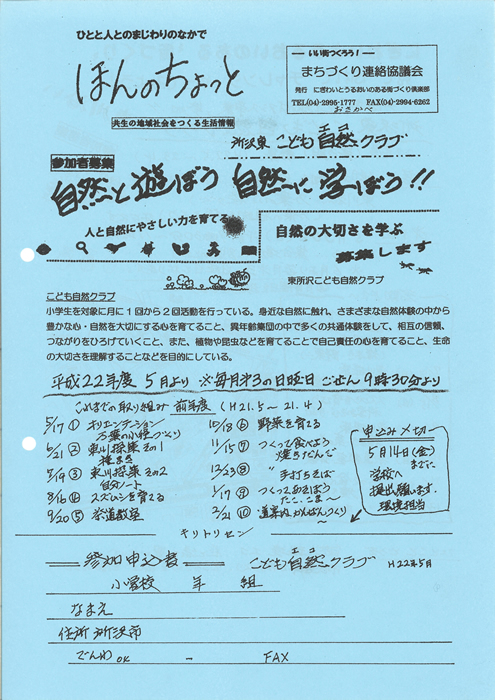 ひとと人とのまじわりのなかで
ほんのちょっと
共生の地域社会をつくる生活情報
いい街つくろう！
まちづくり連絡協議会
発行 にぎわいとうるおいのある街づくり倶楽部
TEL(04)-2995-1777 FAX(04)-2994-6262
おさかべ
所沢東 こども自然クラブ
エコ
参加者募集
自然と遊ぼう 自然に学ぼう!!
人と自然にやさしい力を育てる
自然の大切さを学ぶ
募集します
東所沢こども自然クラブ
こども自然クラブ
小学生を対象に月に１回から２回活動を行っている。身近な自然に触れ、さまざまな自然体験の中から
豊かな心・自然を大切にする心を育てること、異年齢集団の中で多くの共通体験をして、相互の信頼、
つながりをひろげていくこと、また、植物や昆虫などを育てることで自己責任の心を育てること、生命
の大切さを理解することなどを目的にしている。
平成22年度 5月より ※毎月才3の日曜日 ごぜん9時30分より
これまでの取り組み 前年度 (H21.5〜21.4)
5/17 ① オリエンテーション
小径づくり
6/21 ② 東川探築 その1
種まき
7/19 ③ 東川探築 その2
自分ノート
8/16 ④ スズムシを育てる
9/20 ⑤ 茶道教室
10/18 ⑥ 野菜を育てる
11/15 ⑦ つくって食べよう
焼きだんご
12/23 ⑧ 〃 手打ちそば
1/17 ⑨ つくってあそぼう
たこ、こま〜
2/21 ⑩ 道案内かんばんづくり〜
申込み〆切
5月14日(金)
までに
学校へ
提出願います.
環境担当
キリトリセン
参加申込書 こども自然クラブ H22年5月
エコ
小学校 年 組
なまえ
住所 所沢市
でんわ OK − FAX